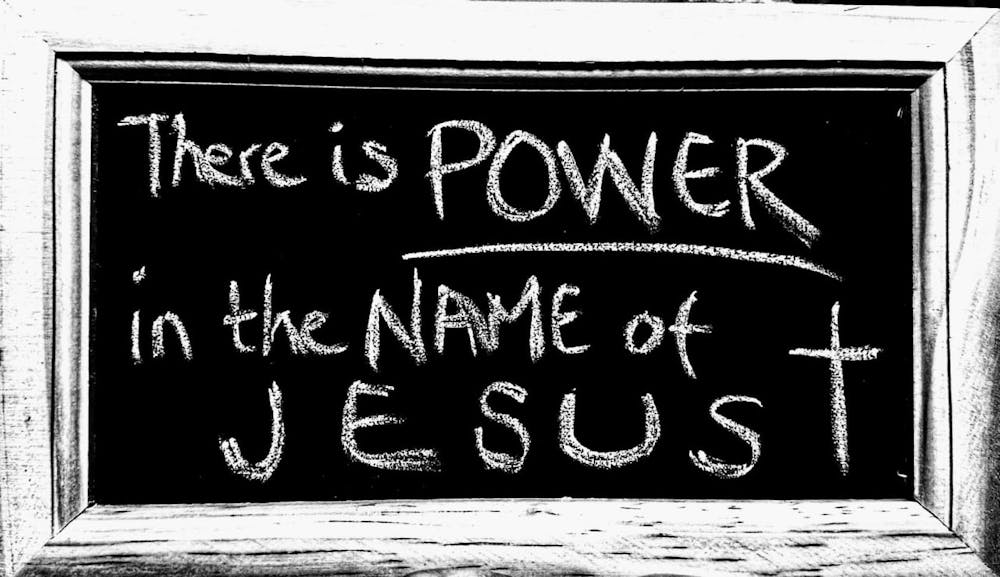 There is POWER
in the NAME of
JESUS